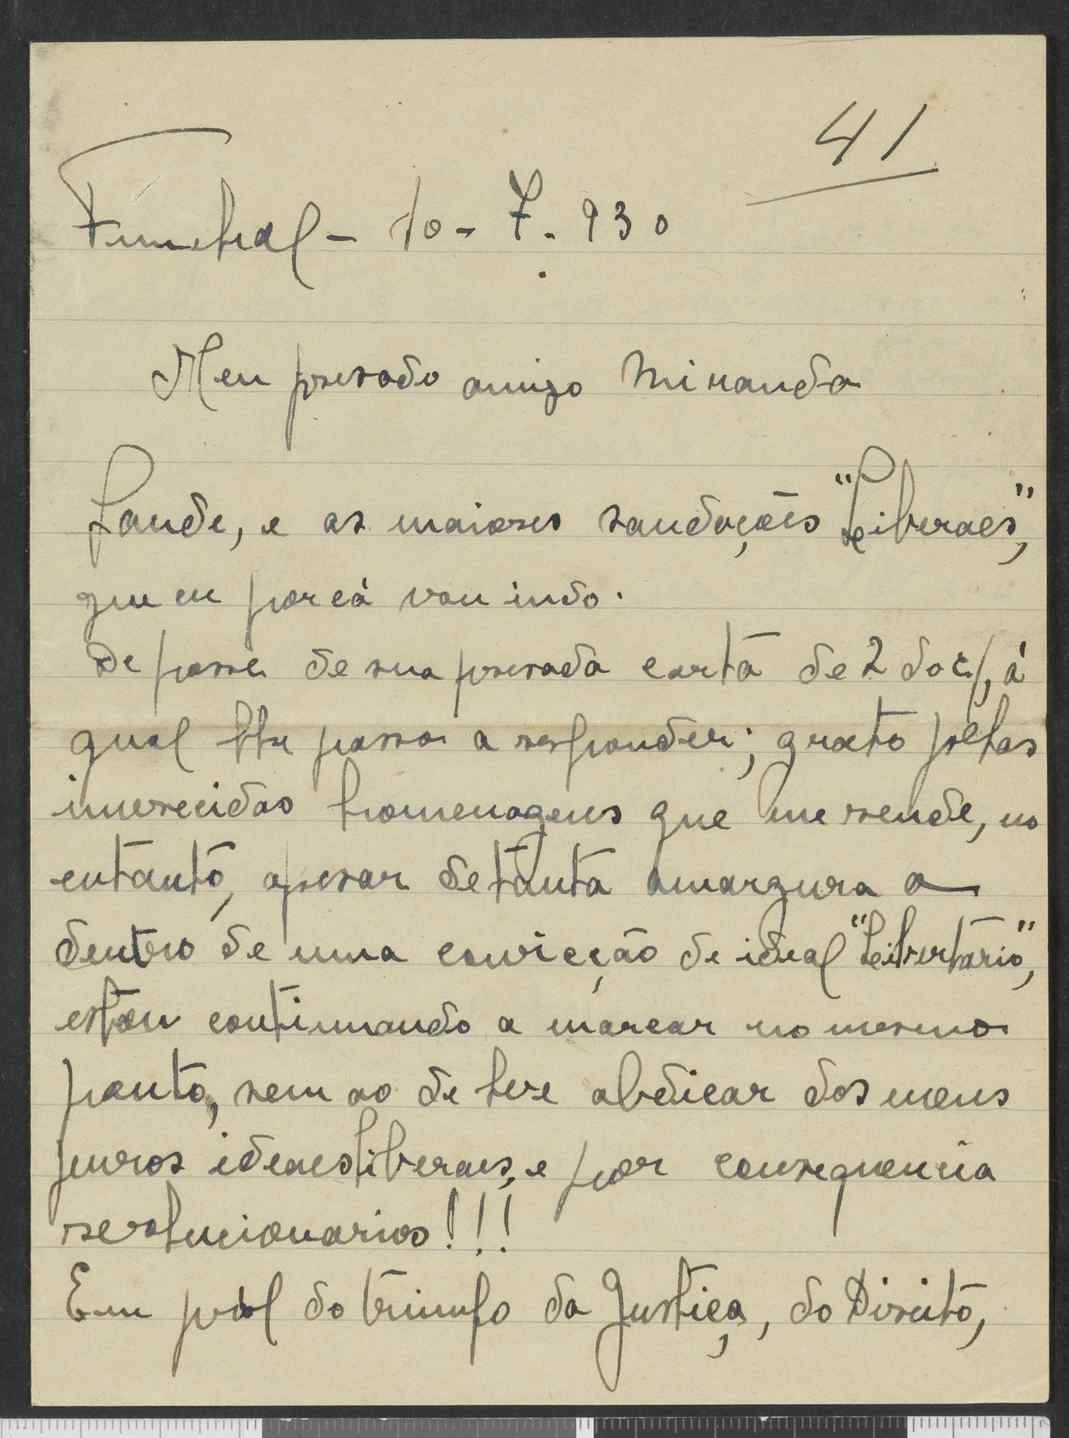 41
Funchal - 10 - 7 - 930
Meu presado amigo Miranda
Saude, e as maiores saudações "Liberaes",
que eu por cá vou indo.
De posse de sua presada carta de 2 do c/, á
qual lhe passo a responder; grato pelas
imerecidas homenagens que me rende, no
entanto, apesar de tanta amargura a
dentro de uma convicção de ideal "Libertario",
estou continuando a marcar no mesmo
ponto, sem ao de leve abdicar dos meus
puros ideaes liberaes, e por consequencia
revolucionarios!!!
Em pról do triumfo da Justiça, do Direito,